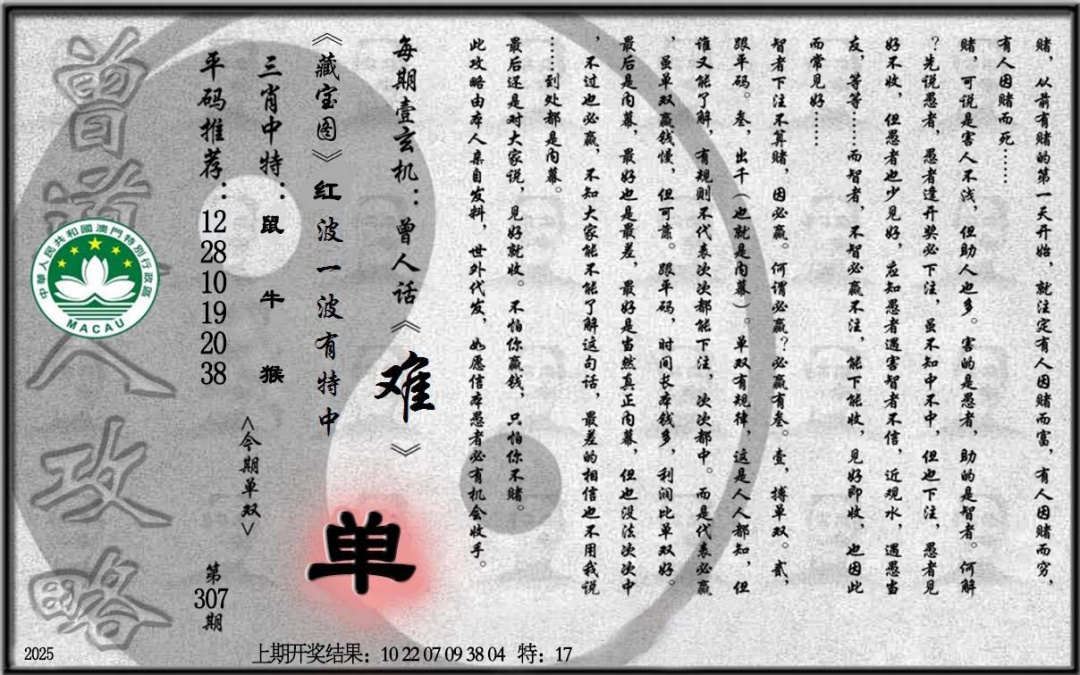 赌，从前有赌的第一天开始，就注定有人因赌而富，有人因赌而穷，
有人因赌而死……
赌，可说是害人不浅，但助人也多。害的是愚者，助的是智者。何解
？先说愚者，愚者逢开奖必下注，虽不知中不中，但也下注，愚者见
好不收，但愚者也少见好，应知愚者遇害智者不信，近观水，遇愚当
友，等等……而智者，不智必赢不注，能下能收，见好即收，也因此
而常见好……
智者下注不算赌，因必赢。何谓必赢？必赢有叁。壹，搏单双。贰，
跟平码。叁，出千（也就是内幕）。单双有规律，这是人人都知，但
谁又能了解，有规则不代表次次都能下注，次次都中。而是代表必赢
，虽单双赢钱慢，但可靠。跟平码，时间长本钱多，利润比单双好。
最后是内幕，最好也是最差，最好是当然真正内幕，但也没法次次中
，不过也必赢，不知大家能不能了解这句话，最差的相信也不用我说
……到处都是内幕。
最后还是对大家说，见好就收。不怕你赢钱，只怕你不赌。
此攻略由本人亲自发料，世外代发，如愿信本愚者必有机会收手。
每期壹玄机：曾人话《难》
《藏宝图》红波一波有特中
三肖中特：鼠 牛 猴
平码推荐：12 28 10 19 20 38
<今期单双>
单
第307期
曾道人攻略
中華人民共和國澳門特別行政區
MACAU
2025
上期开奖结果：10 22 07 09 38 04 特：17